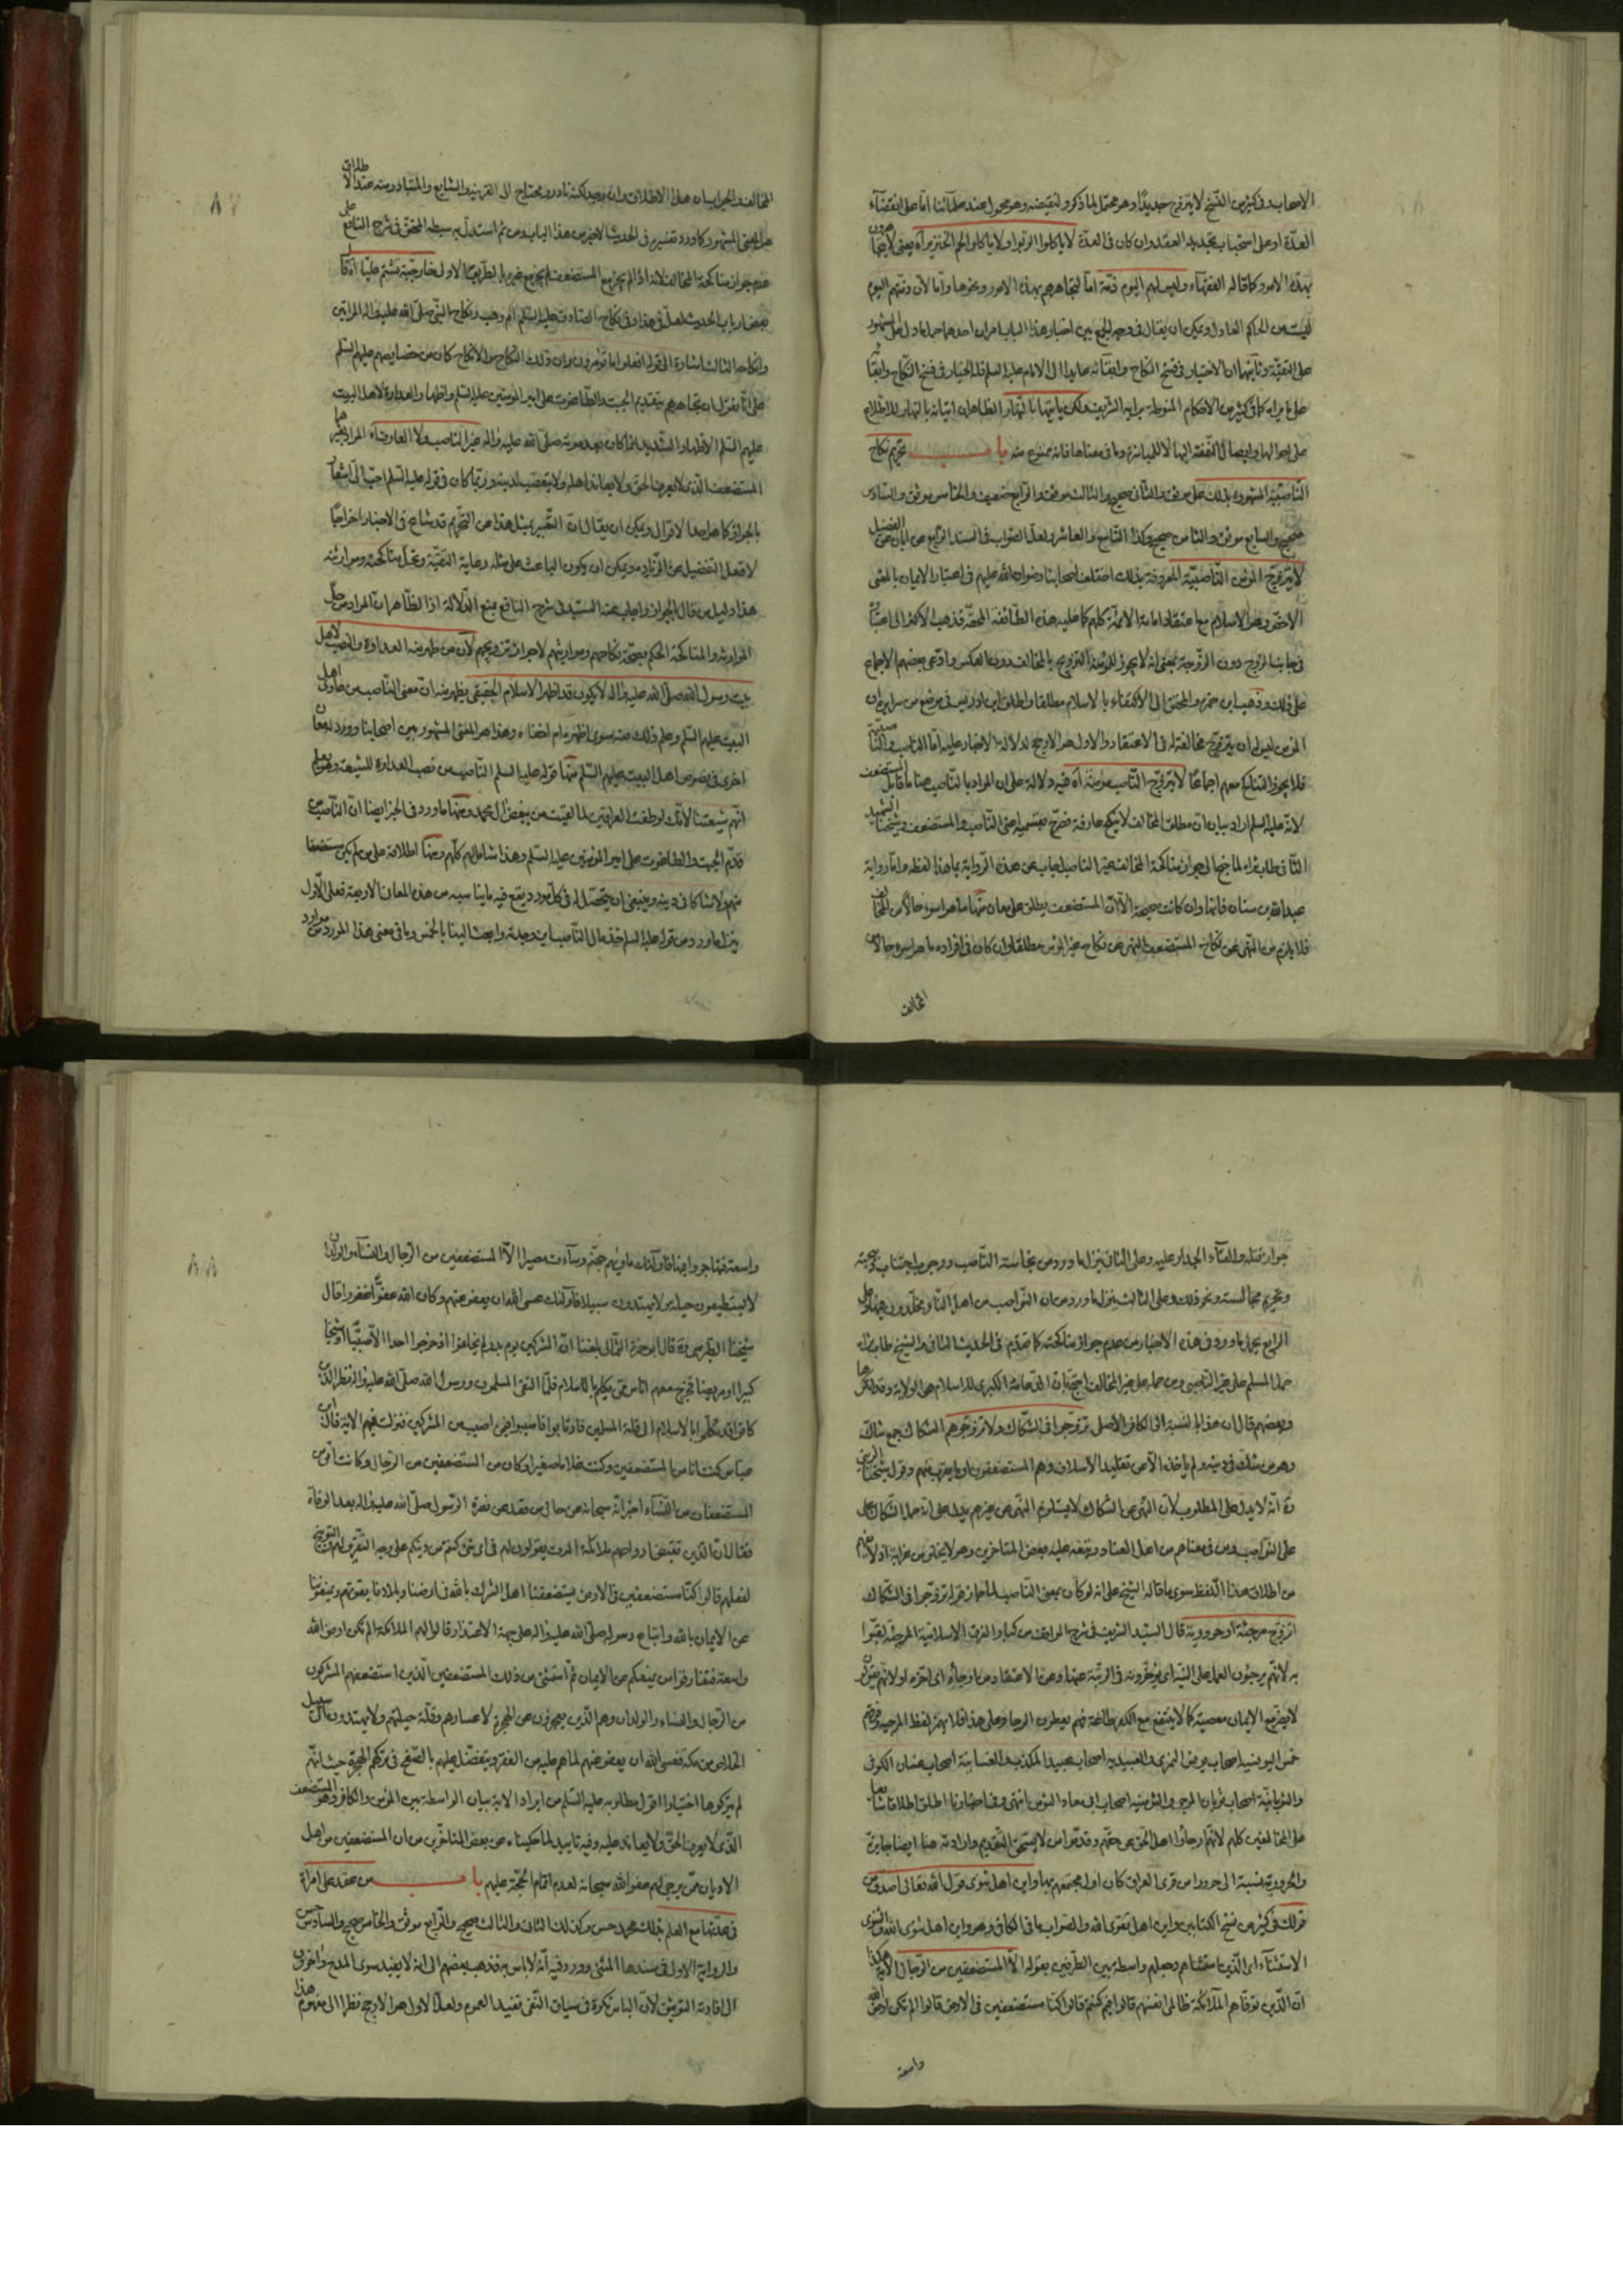 الاصحاب وفي كثير من النسخ لا يتزوج جديدا وهو محتمل لما ذكر ولنقيضه وهو محمول عند علمائنا اما على انقضاء
العدة او على استحباب تجديد العقد وان كان في العدة لا ياكلوا الربوا ولا ياكلوا لحم الخنزير اه يعني لا يتجاهرون
بهذه الامور كما قاله الفقهاء وليس لهم اليوم ذمة اما لتجاهرهم بهذه الامور ونحوها واما لان ذمتهم اليوم
ليست من الحاكم العادل ويمكن ان يقال في وجه الجمع بين اخبار هذا الباب امران احدهما حمل ما دل على المشهور
على التقية وثانيهما ان الاختيار في فسخ النكاح وابقائه عايد الى الامام عليه السلم فله الخيار في فسخ النكاح وابقائه
على ما يراه كما في كثير من الاحكام المنوطة برايه الشريف ولكن ياتيها بالنهار الظاهر ان اتيانه بالنهار للاطلاع
على احوالها وايصال النفقة اليها لا للمباشرة وما في معناها فانه ممنوع منه باب تحريم نكاح
الناصبية المشهورة بذلك على موثق والثاني صحيح والثالث موثق والرابع ضعيف والخامس موثق والسادس
صحيح والسابع موثق والثامن صحيح وكذا التاسع والعاشر ولعل الصواب في السند الرابع عن ابان عن الفضيل
لا يتزوج المؤمن الناصبية المعروفة بذلك اختلف اصحابنا رضوان الله عليهم في اعتبار الايمان بالمعنى
الاخص وهو الاسلام مع اعتقاد امامة الائمة كلهم كما عليه هذه الطائفة المحقة فذهب الاكثر الى اعتباره
في جانب الزوج دون الزوجة بمعنى انه لا يجوز للمؤمنة التزويج بالمخالف دون العكس وادعى بعضهم الاجماع
على ذلك وذهب ابن حمزه والمحقق الى الاكتفاء بالاسلام مطلقا واطلق ابن ادريس في موضع من سرايره ان
المؤمن ليس له ان يتزوج مخالفة له في الاعتقاد والاول هو الارجح لدلالة الاخبار عليه اما الناصب والناصبية
فلا يجوز التناكح معهم اجماعا لا يتزوج الناصب مؤمنة اه فيه دلالة على ان المراد بالناصب هنا ما قابل المستضعف
لانه عليه السلم اراد بيان ان مطلق المخالف لا ينكح عارفة فصرح بقسميه اعني الناصب والمستضعف وشيخنا الشهيد
الثاني طاب ثراه لما جنح الى جواز مناكحة المخالف غير الناصب اجاب عن هذه الرواية بما هذا لفظه واما رواية
عبد الله بن سنان فانها وان كانت صحيحة الا ان المستضعف يطلق على معان منها ما هو اسوء حالا من المخالف
فلا يلزم من النهي عن نكاح المستضعف النهي عن نكاح غير المؤمن مطلقا وان كان في افراده ما هو اسوء حالا من
المخالف
المخالف والجواب ان هذا الاطلاق وان وجد لكنه نادر ومحتاج الى القرينة والشايع والمتبادر منه عند الاطلاق
هو المعنى المشهور كما ورد تفسيره في الحديث الاخير من هذا الباب ومن ثم استدل به سبطه المحقق في شرح النافع على
عدم جواز مناكحة المخالف لانه اذا لم يجز مع المستضعف لم يجز مع غيره بالطريق الاولى خارجية تشتم عليا اه قال
بعض ارباب الحديث لعل في هذا وفي نكاح الصادق عليه السلم ام وهب ونكاح النبي صلى الله عليه واله المراتين
وانكاحه الثالث اشارة الى قوله افعلوا ما تؤمرون وان ذلك النكاح والانكاح كان من خصايصهم عليهم السلم
على انا نقول ان تجاهرهم بتقديم الجبت والطاغوت على امير المؤمنين عليه السلم واظهار العداوة لاهل البيت
عليهم السلم الاظهار الشديد انما كان بعد موته صلى الله عليه واله غير الناصب ولا العارفة اه المراد بغيرهما
المستضعف الذي لا يعرف الحق ولا يعاند اهله ولا يتعصب لدينه وربما كان في قوله عليه السلم احب الي اشعار
بالجواز كما هو احد الاقوال ويمكن ان يقال ان التعبير بمثل هذا عن التحريم قد شاع في الاخبار اخراجا
لافعل التفضيل عن الزيادة ويمكن ان يكون الباعث على مثله رعاية التقية وتحل مناكحته وموارثته
هذا دليل من قال بالجواز واجاب عنه السيد في شرح النافع بمنع الدلالة اذ الظاهر ان المراد من حل
الموارثة والمناكحة الحكم بصحة نكاحهم ومواريثهم لا جواز تزويجهم لان من ظهر منه العداوة والنصب لاهل
بيت رسول الله صلى الله عليه واله لا يكون قد اظهر الاسلام الحقيقي يظهر منه ان معنى الناصب من عادى اهل
البيت عليهم السلم وعلم ذلك منه سوى اظهره ام اخفاه وهذا هو المعنى المشهور بين اصحابنا وورد لمعان
اخرى في نصوص اهل البيت عليهم السلم منها قوله عليه السلم الناصب من نصب العداوة للشيعة وهو يعلم
انهم شيعتنا لانك لو طفت العراقين لما لقيت من يبغض آل محمد ومنها ما ورد في الخبر ايضا ان الناصب من
قدم الجبت والطاغوت على امير المؤمنين عليه السلم وهذا شامل لهم كلهم ومنها اطلاقه على من لم يكن مستضعفا
منهم ولا شاكا في دينه وينبغي ان يتحصل له في كل مورد يقع فيه ما يناسبه من هذه المعان الاربعة فعلى الاول
ينزل ما ورد من قوله عليه السلم خذ مال الناصب اين وجدته وابعث الينا بالخمس وما في معنى هذا المورد من موارد
جواز قتله والقاء الجدار عليه وعلى الثاني ينزل ما ورد من نجاسة الناصب ووجوب اجتناب
وتحريم مجالسته ونحو ذلك وعلى الثالث ينزل ما ورد من ان النواصب من اهل النار مخلدون فيها وعلى
الرابع يحمل ما ورد في هذه الاخبار من عدم جواز مناكحته كما تقدم في الحديث الثاني والشيخ طاب ثراه
حمل المسلم على غير الناصبي ومن حمله على غير المخالف احتج بان الدعامة الكبرى للاسلام هي الولاية وقد
وبعضهم قال ان هذا بالنسبة الى الكافر الاصلي تزوجوا في الشكاك ولا تزوجوهم الشكاك جمع شاك
وهو من شك في دينه ولم ياخذه الا عن تقليد الاسلاف وهم المستضعفون او ما يقرب منهم وقول شيخنا
ره انه لا يدل على المطلوب لان النهي عن الشكاك لا يستلزم النهي عن غيرهم يدل على انه حمل الشكاك على
على النواصب ومن في معناهم من اهل العناد وتبعه عليه بعض المتاخرين وهو لا يخلو من غرابة اذ لا
من اطلاق هذا اللفظ سوى ما قاله الشيخ على انه لو كان بمعنى الناصب لما جاز قوله تزوجوا في الشكاك
اتزوج مرجئة او حرورية قال السيد الشريف في شرح المواقف من كبار الفرق الاسلامية المرجئة لقبوا
به لانهم يرجئون العمل على النية اي يؤخرونه في الرتبة عنها وعن الاعتقاد من ارجاه اي اخره او لانهم يقولون
لا يضر مع الايمان معصية كما لا ينفع مع الكفر طاعة فهم يعطون الرجاء وعلى هذا فلا يهمز لفظ المرجية وفرقهم
خمس اليونسية اصحاب يونس النمري والعبيدية اصحاب عبيد المكذب والغسانية اصحاب غسان الكوفي
والثوبانية اصحاب ثوبان المرجي والثومنية اصحاب ابي معاذ الثومني انتهى وفي اخبارنا اطلق اطلاقا شايعا
على المخالفين كلهم لانهم ارجأوا اهل الحق عن حقهم وقدموا من لا يستحق التقديم وارادته هنا ايضا جايزة
والحرورية نسبة الى حرورا من قرى العراق كان اول مجتمعهم بها واين اهل ثنوى قول الله تعالى اصدق من
قولك في كثير من نسخ الكتابين واين اهل تقوى الله والصواب ما في الكافي وهو واين اهل ثنوى الله والثنوى
الاستثناء اي الذين استثناهم وجعلهم واسطة بين الطرفين بقوله الا المستضعفين من الرجال الاية هكذا
ان الذين توفاهم الملائكة ظالمي انفسهم قالوا فيم كنتم قالوا كنا مستضعفين في الارض قالوا الم تكن ارض الله
واسعة
واسعة فتهاجروا فيها فاولئك ماويهم جهنم وساءت مصيرا الا المستضعفين من الرجال والنساء والولدان
لا يستطيعون حيلة ولا يهتدون سبيلا فاولئك عسى الله ان يعفو عنهم وكان الله عفوا غفورا قال
شيخنا الطبرسي ره قال ابو حمزة الثمالي بلغنا ان المشركين يوم بدر لم يخلفوا اذ خرجوا احدا الا صبيا او شيخا
كبيرا او مريضا فخرج معهم اناس ممن تكلم بالاسلام فلما التقى المسلمون ورسول الله صلى الله عليه واله نظر الذين
كانوا قد تكلموا بالاسلام الى قلة المسلمين فارتابوا فاصيبوا فيمن اصيب من المشركين فنزلت فيهم الاية قال ابن
عباس كنت انا من المستضعفين وكنت غلاما صغيرا وكان من المستضعفين من الرجال وكانت امي من
المستضعفات من النساء اخبر الله سبحانه عن حال من قعد عن نصرة الرسول صلى الله عليه واله بعد الوفاة
فقال ان الذين تقبض ارواحهم ملائكة الموت يقولون لهم في اي شئ كنتم من دينكم على وجه التقرير لهم والتوبيخ
لفعلهم قالوا كنا مستضعفين في الارض يستضعفنا اهل الشرك بالله في ارضنا وبلادنا بقوتهم ويمنعونا
عن الايمان بالله واتباع رسوله صلى الله عليه واله على جهة الاعتذار قالوا لهم الملائكة الم تكن ارض الله
واسعة فتفارقوا من يمنعكم من الايمان ثم استثنى من ذلك المستضعفين الذين استضعفهم المشركون
من الرجال والنساء والولدان وهم الذين يعجزون عن الهجرة لاعسارهم وقلة حيلتهم ولا يهتدون الى سبيل
الخلاص من مكة فعسى الله ان يعفو عنهم لما هم عليه من الفقر ويتفضل عليهم بالصفح في تركهم الهجرة حيث انهم
لم يتركوها اختيارا اقول مطلوبه عليه السلم من ايراد الاية بيان الواسطة بين المؤمن والكافر وهو المستضعف
الذي لا يعرف الحق ولا يعاند عليه وفيه تاييد لما حكيناه عن بعض المتاخرين من ان المستضعفين من اهل
الاديان ممن يرجى لهم عفو الله سبحانه لعدم اتمام الحجة عليهم باب من عقد على امراة
في عدتها مع العلم بذلك مجهول حسن وكذلك الثاني والثالث صحيح والرابع موثق والخامس صحيح والسادس حسن
والرواية الاولى في سندها المثنى وورد فيه انه لا باس به فذهب بعضهم الى انه لا يفيد سوى المدح واخرون
الى افادته التوثيق لان الباس نكرة في سياق النفي تفيد العموم ولعل الاول هو الارجح نظرا الى مفهوم هذا